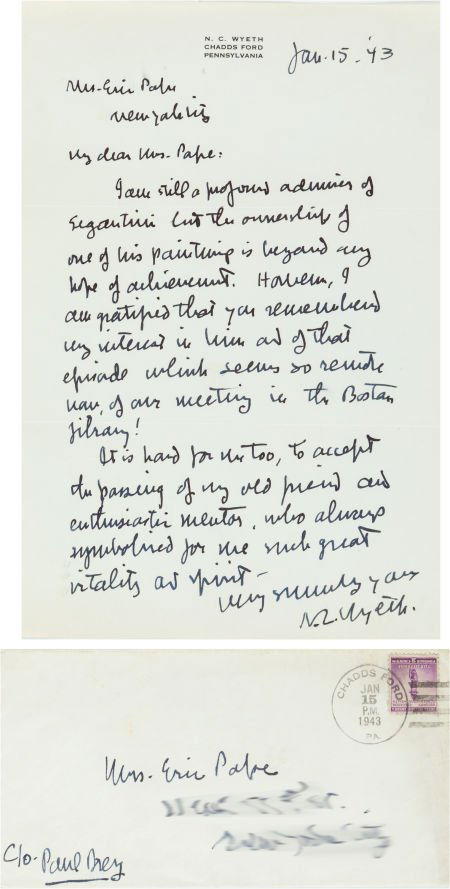 N. C. WYETH
CHADDS FORD
PENNSYLVANIA
Jan. 15 - '43
Mrs. Eric Pape
New York City
My dear Mrs. Pape:
I am still a profound admirer of
Segantini but the ownership of
one of his paintings is beyond any
hope of achievement. However, I
am gratified that you remembered
my interest in him and of that
episode which seems so remote
now, of our meeting in the Boston
Library!
It is hard for me too, to accept
the passing of my old friend and
enthusiastic mentor, who always
symbolized for me such great
vitality and spirit -
Very sincerely yours
N. C. Wyeth.
CHADDS FORD
JAN
15
P.M.
1943
PA.
Mrs. Eric Pape
C/o - Paul